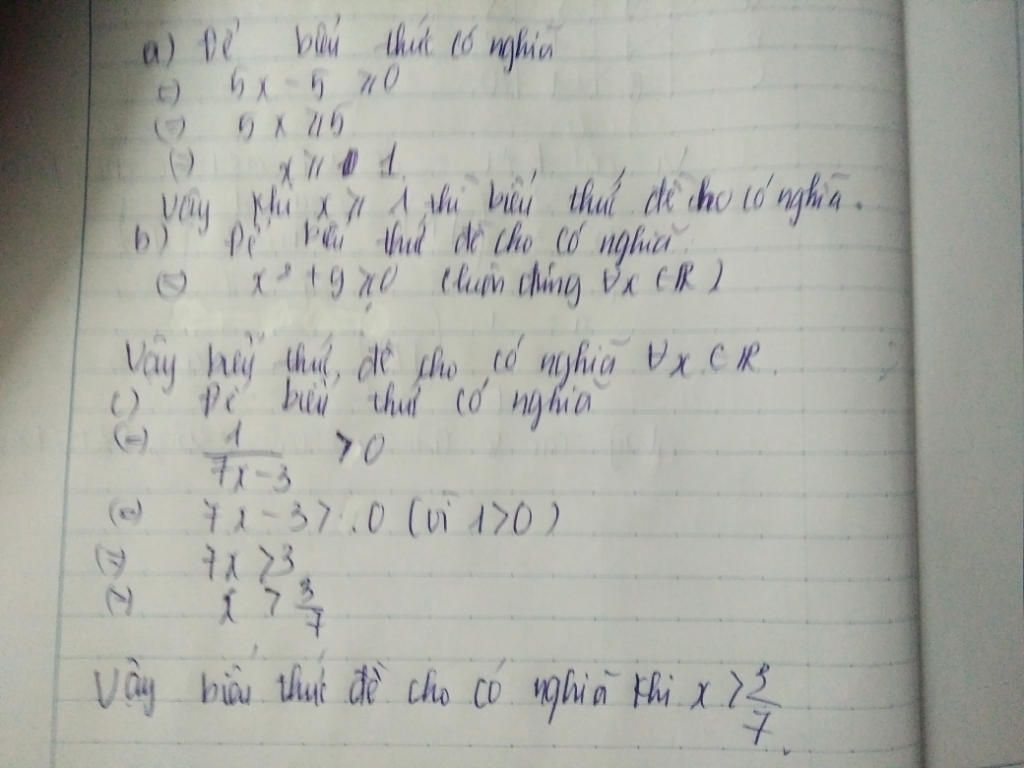 a) Để biểu thức có nghĩa
(=) 5x - 5 ⩾ 0
(=) 5x ⩾ 5
(=) x ⩾ 1
Vậy khi x ⩾ 1 thì biểu thức đề cho có nghĩa.
b) Để biểu thức đề cho có nghĩa
(=) x² + 9 ⩾ 0 (luôn đúng ∀x ∈ ℝ)
Vậy biểu thức đề cho có nghĩa ∀x ∈ ℝ.
c) Để biểu thức có nghĩa
(=) 1/(7x-3) > 0
(=) 7x - 3 > 0 (vì 1>0)
(=) 7x > 3
(=) x > 3/7
Vậy biểu thức đề cho có nghĩa khi x > 3/7.